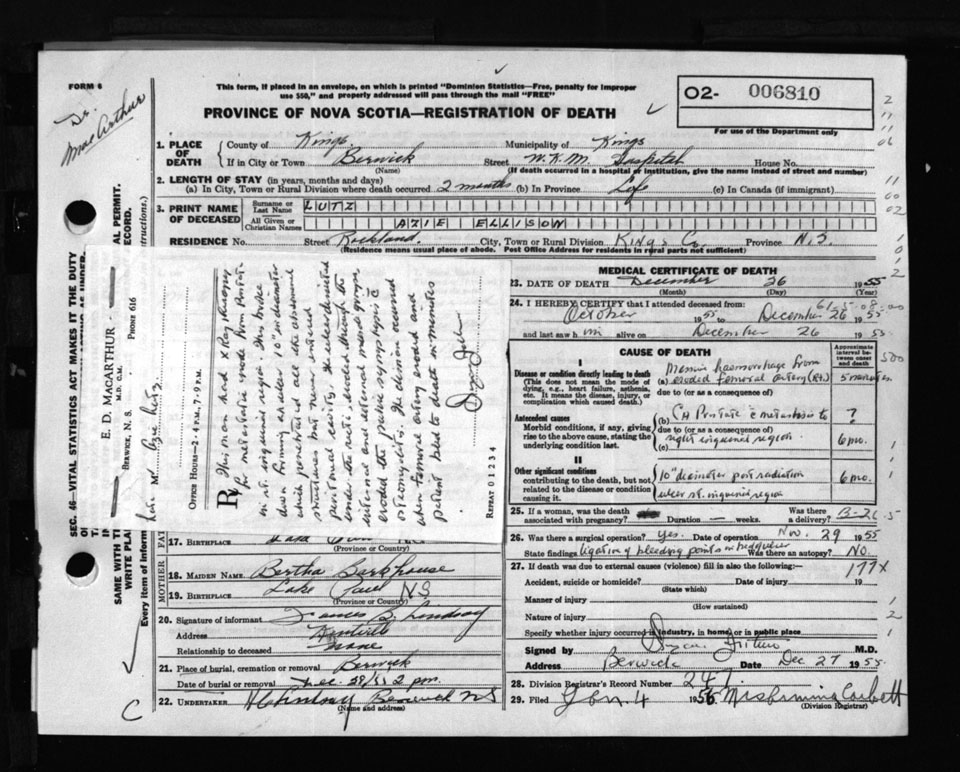 FORM 6
Dr. MacArthur
This form, if placed in an envelope, on which is printed "Dominion Statistics—Free, penalty for improper
use $50," and properly addressed will pass through the mail "FREE"
PROVINCE OF NOVA SCOTIA—REGISTRATION OF DEATH
O2- 006810
For use of the Department only
1. PLACE OF DEATH
County of Kings Municipality of Kings
If in City or Town Berwick Street W.K.M. Hospital House No.
(Name) (If death occurred in a hospital or institution, give the name instead of street and number)
2. LENGTH OF STAY (in years, months and days)
(a) In City, Town or Rural Division where death occurred 2 months (b) In Province Life (c) In Canada (if immigrant)
3. PRINT NAME OF DECEASED
Surname or Last Name LUTZ
All Given or Christian Names AZIE ELLISON
RESIDENCE No. Street Rockland. City, Town or Rural Division Kings Co. Province N.S.
(Residence means usual place of abode. Post Office Address for residents in rural parts not sufficient)
SEC. 46—VITAL STATISTICS ACT MAKES IT THE DUTY
Every item of
WRITE PLAIN
SAME WITH
E. D. MACARTHUR
M.D. C.M.
BERWICK, N. S. PHONE 616
OFFICE HOURS—2-4 P.M., 7-9 P.M.
Late Mr Azie Lutz
R This man had x Ray therapy
for metastatic node from Prostate
in rt. inguinal region. This broke
down forming an ulcer 10" in diameter
which penetrated all the abdominal
structures but never entered
peritoneal cavity. The ulcer
under the rectus; eroded through the
internal and external
eroded the pubic symphysis c̄
osteomyelitis. The demise occurred
when femoral artery eroded and
patient bled to death in minutes
REPEAT 0 1 2 3 4
17. BIRTHPLACE
(Province or Country)
MOTHER
18. MAIDEN NAME Bertha Barkhouse
19. BIRTHPLACE Lake Paul NS
(Province or Country)
20. Signature of informant Frances B. Lindsay
Address Kentville
Relationship to deceased None
21. Place of burial, cremation or removal Berwick
Date of burial or removal Dec. 28/55 2 pm.
22. UNDERTAKER Berwick NS
(Name and address)
MEDICAL CERTIFICATE OF DEATH
23. DATE OF DEATH December 26 1955
(Month) (Day) (Year)
24. I HEREBY CERTIFY that I attended deceased from:
October 1955 to December 26 1955
and last saw him alive on December 26 1955
CAUSE OF DEATH
Approximate interval between onset and death
I
Disease or condition directly leading to death
(This does not mean the mode of dying, e.g., heart failure, asthenia, etc. It means the disease, injury, or complication which caused death.)
(a) Massive haemorrhage from eroded femoral artery (Rt.) 5 minutes
due to (or as a consequence of)
Antecedent causes
Morbid conditions, if any, giving rise to the above cause, stating the underlying condition last.
(b) CA Prostate c̄ metastasis to ?
due to (or as a consequence of)
right inguinal region. 6 mo.
(c)
II
Other significant conditions
contributing to the death, but not related to the disease or condition causing it.
10" diameter post radiation 6 mo.
ulcer rt. inguinal region
25. If a woman, was the death associated with pregnancy? Duration — weeks. Was there a delivery?
B-26
26. Was there a surgical operation? Yes. Date of operation Nov. 29 1955
State findings ligation of bleeding points in Was there an autopsy? NO.
27. If death was due to external causes (violence) fill in also the following:—
177x
Accident, suicide or homicide? Date of injury 19
(State which)
Manner of injury
(How sustained)
Nature of injury
Specify whether injury occurred in industry, in home, or in public place
Signed by M.D.
Address Berwick Date Dec 27 1955
28. Division Registrar's Record Number 241
29. Filed Jan. 4 1956
(Division Registrar)
C